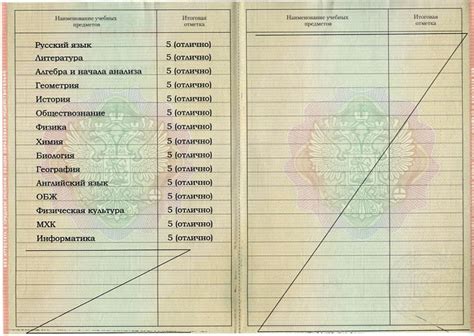 Наименование учебных предметов
Итоговая отметка
Русский язык 5 (отлично)
Литература 5 (отлично)
Алгебра и начала анализа 5 (отлично)
Геометрия 5 (отлично)
История 5 (отлично)
Обществознание 5 (отлично)
Физика 5 (отлично)
Химия 5 (отлично)
Биология 5 (отлично)
География 5 (отлично)
Английский язык 5 (отлично)
ОБЖ 5 (отлично)
Физическая культура 5 (отлично)
МХК 5 (отлично)
Информатика 5 (отлично)
Наименование учебных предметов
Итоговая отметка